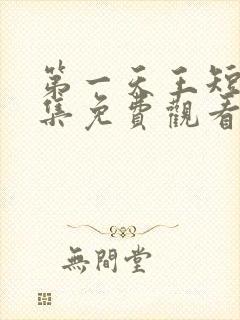 第一天王短
集免費觀看
無間堂